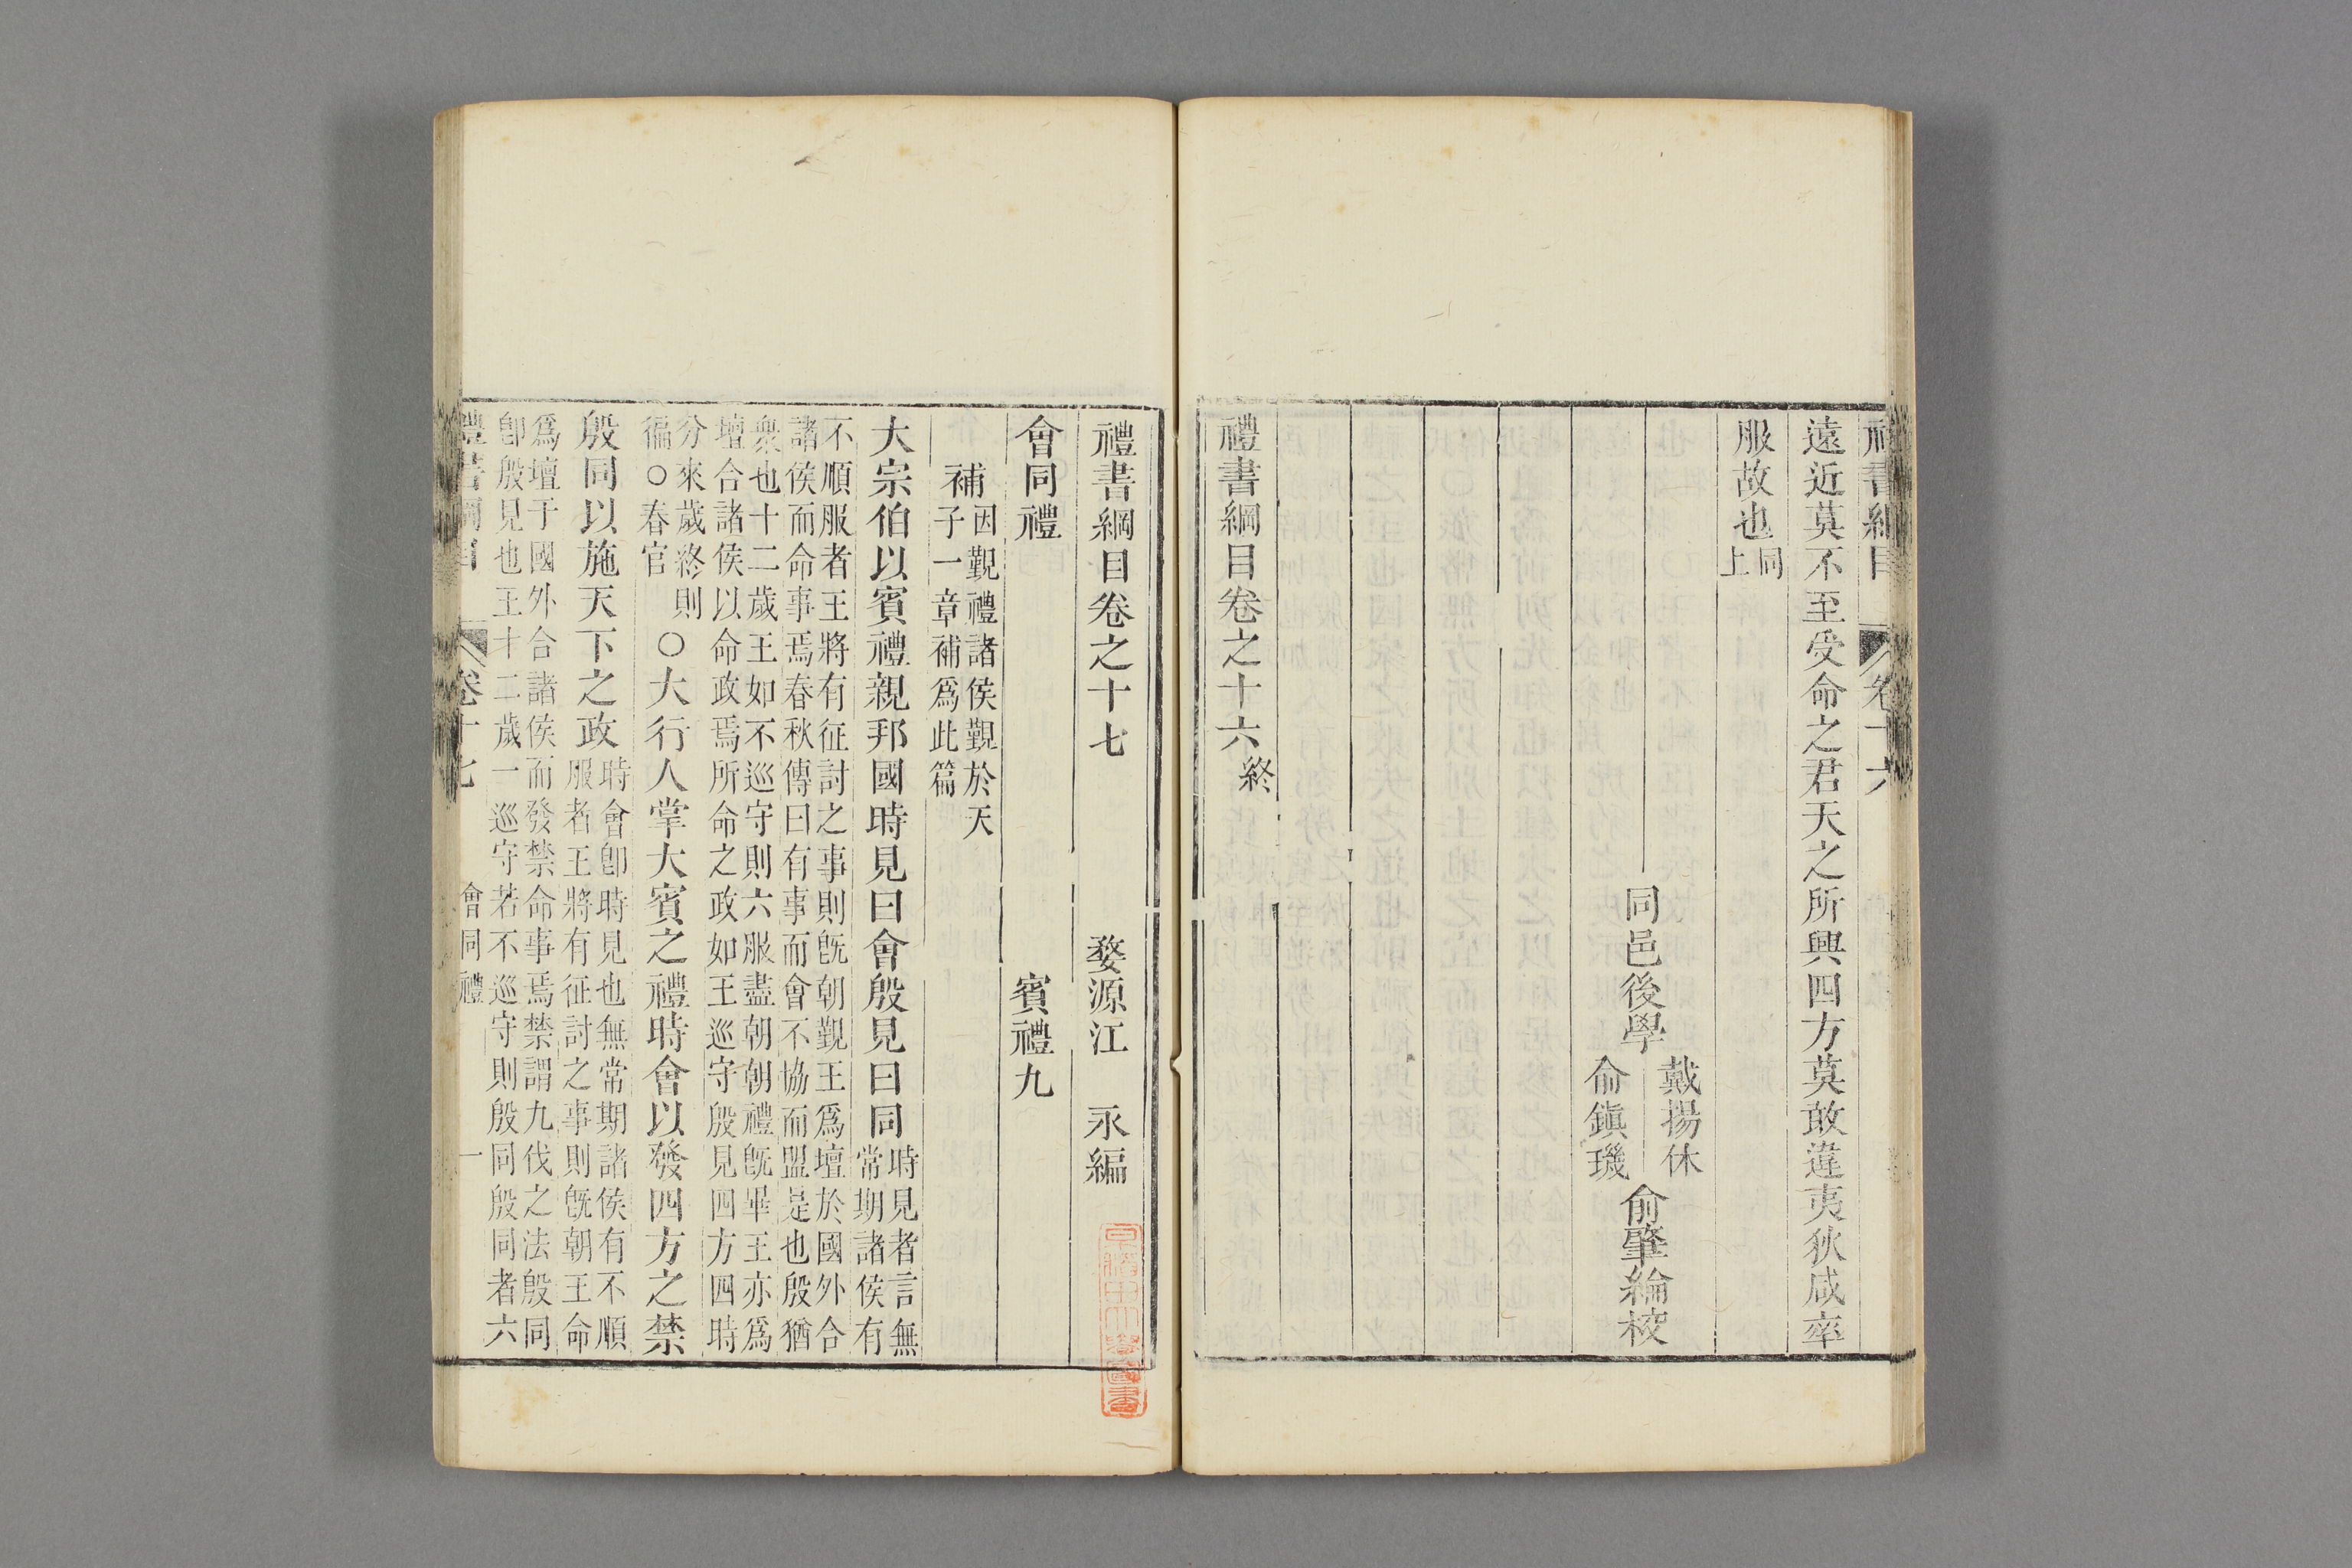 禮書綱目
卷十六
遠近莫不至受命之君天之所興四方莫敢違夷狄咸率
服故也同上
同邑後學
戴揚休
俞鎮璣
俞肇綸校
禮書綱目卷之十六終
禮書綱目卷之十七
婺源江永編
會同禮
賓禮九
補因覲禮諸侯覲於天
子一章補爲此篇
大宗伯以賓禮親邦國時見曰會殷見曰同時見者言無
常期諸侯有
不順服者王將有征討之事則旣朝覲王爲壇於國外合
諸侯而命事焉春秋傳曰有事而會不協而盟是也殷猶
衆也十二歲王如不巡守則六服盡朝朝禮旣畢王亦爲
壇合諸侯以命政焉所命之政如王巡守殷見四方四時
分來歲終則
徧○春官
○大行人掌大賓之禮時會以發四方之禁
殷同以施天下之政時會卽時見也無常期諸侯有不順
服者王將有征討之事則旣朝王命
爲壇于國外合諸侯而發禁命事焉禁謂九伐之法殷同
卽殷見也王十二歲一巡守若不巡守則殷同殷同者六
禮書綱目
卷十七
會同禮
一